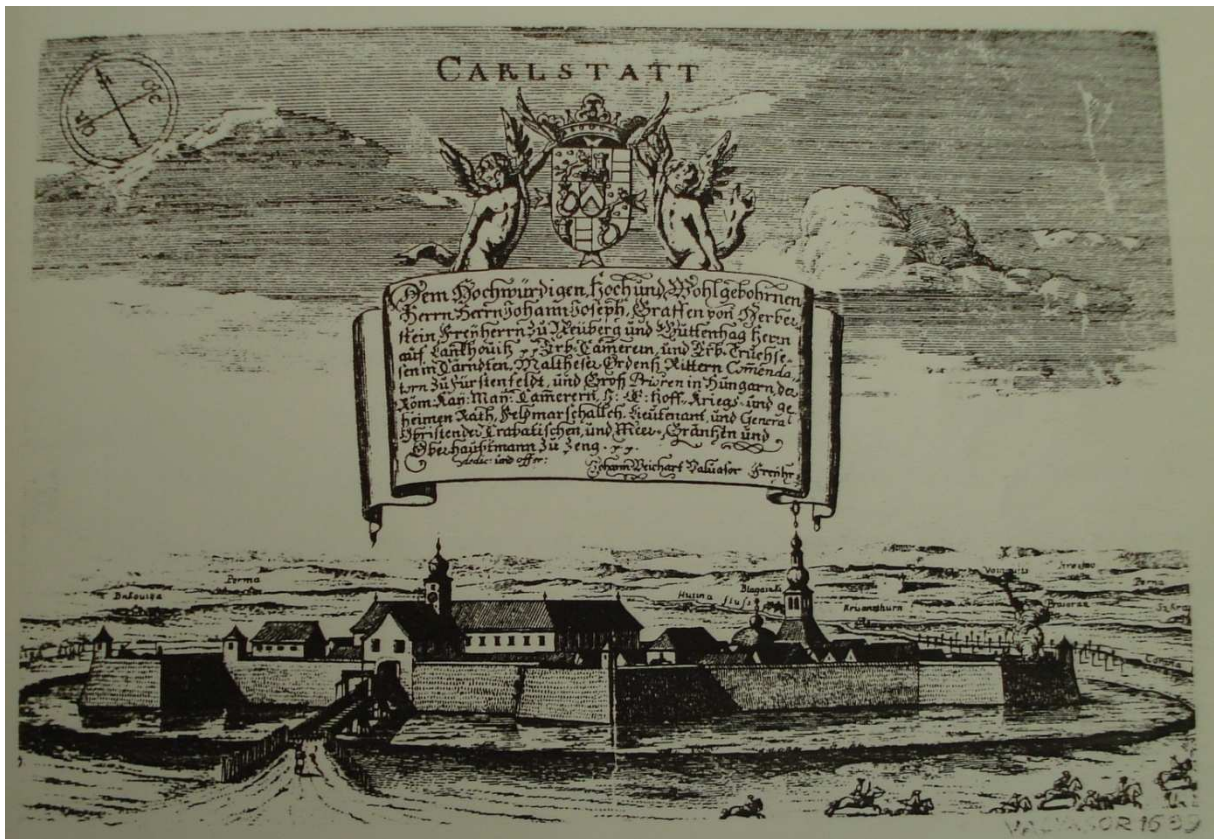 CARLSTATT
Dem Hochwürdigen, Hoch und Wohlgebohrnen
Herrn Herrn Johann Joseph, Graffen von Herber
stein Freÿherrn zu Neüberg und Guttenhag Herrn
auf Lankhouitz Erb Camerern, und Erb Truchse
sen in Cärndten, Maltheser Ordenß Rittern Comenda
torn zu Fürstenfeldt, und Groß Prioren in Hungarn, der
Röm: Kaÿ: Maÿ: Camerern, I: Ö: Hoff Kriegs und ge
heimen Rath, Feldmarschallch Lieutenant, und General
Obristen der Crabatischen, und Meer Gräntzen und
Oberhaubtmann zu Zeng.
dedic: und offer:
Johann Weichart Valuasor Freÿhr
Perma
Dubouiza
Hutina
fluſs
Blagaintz
Kruanethurn
Perna
Corona
VALVASOR 1689